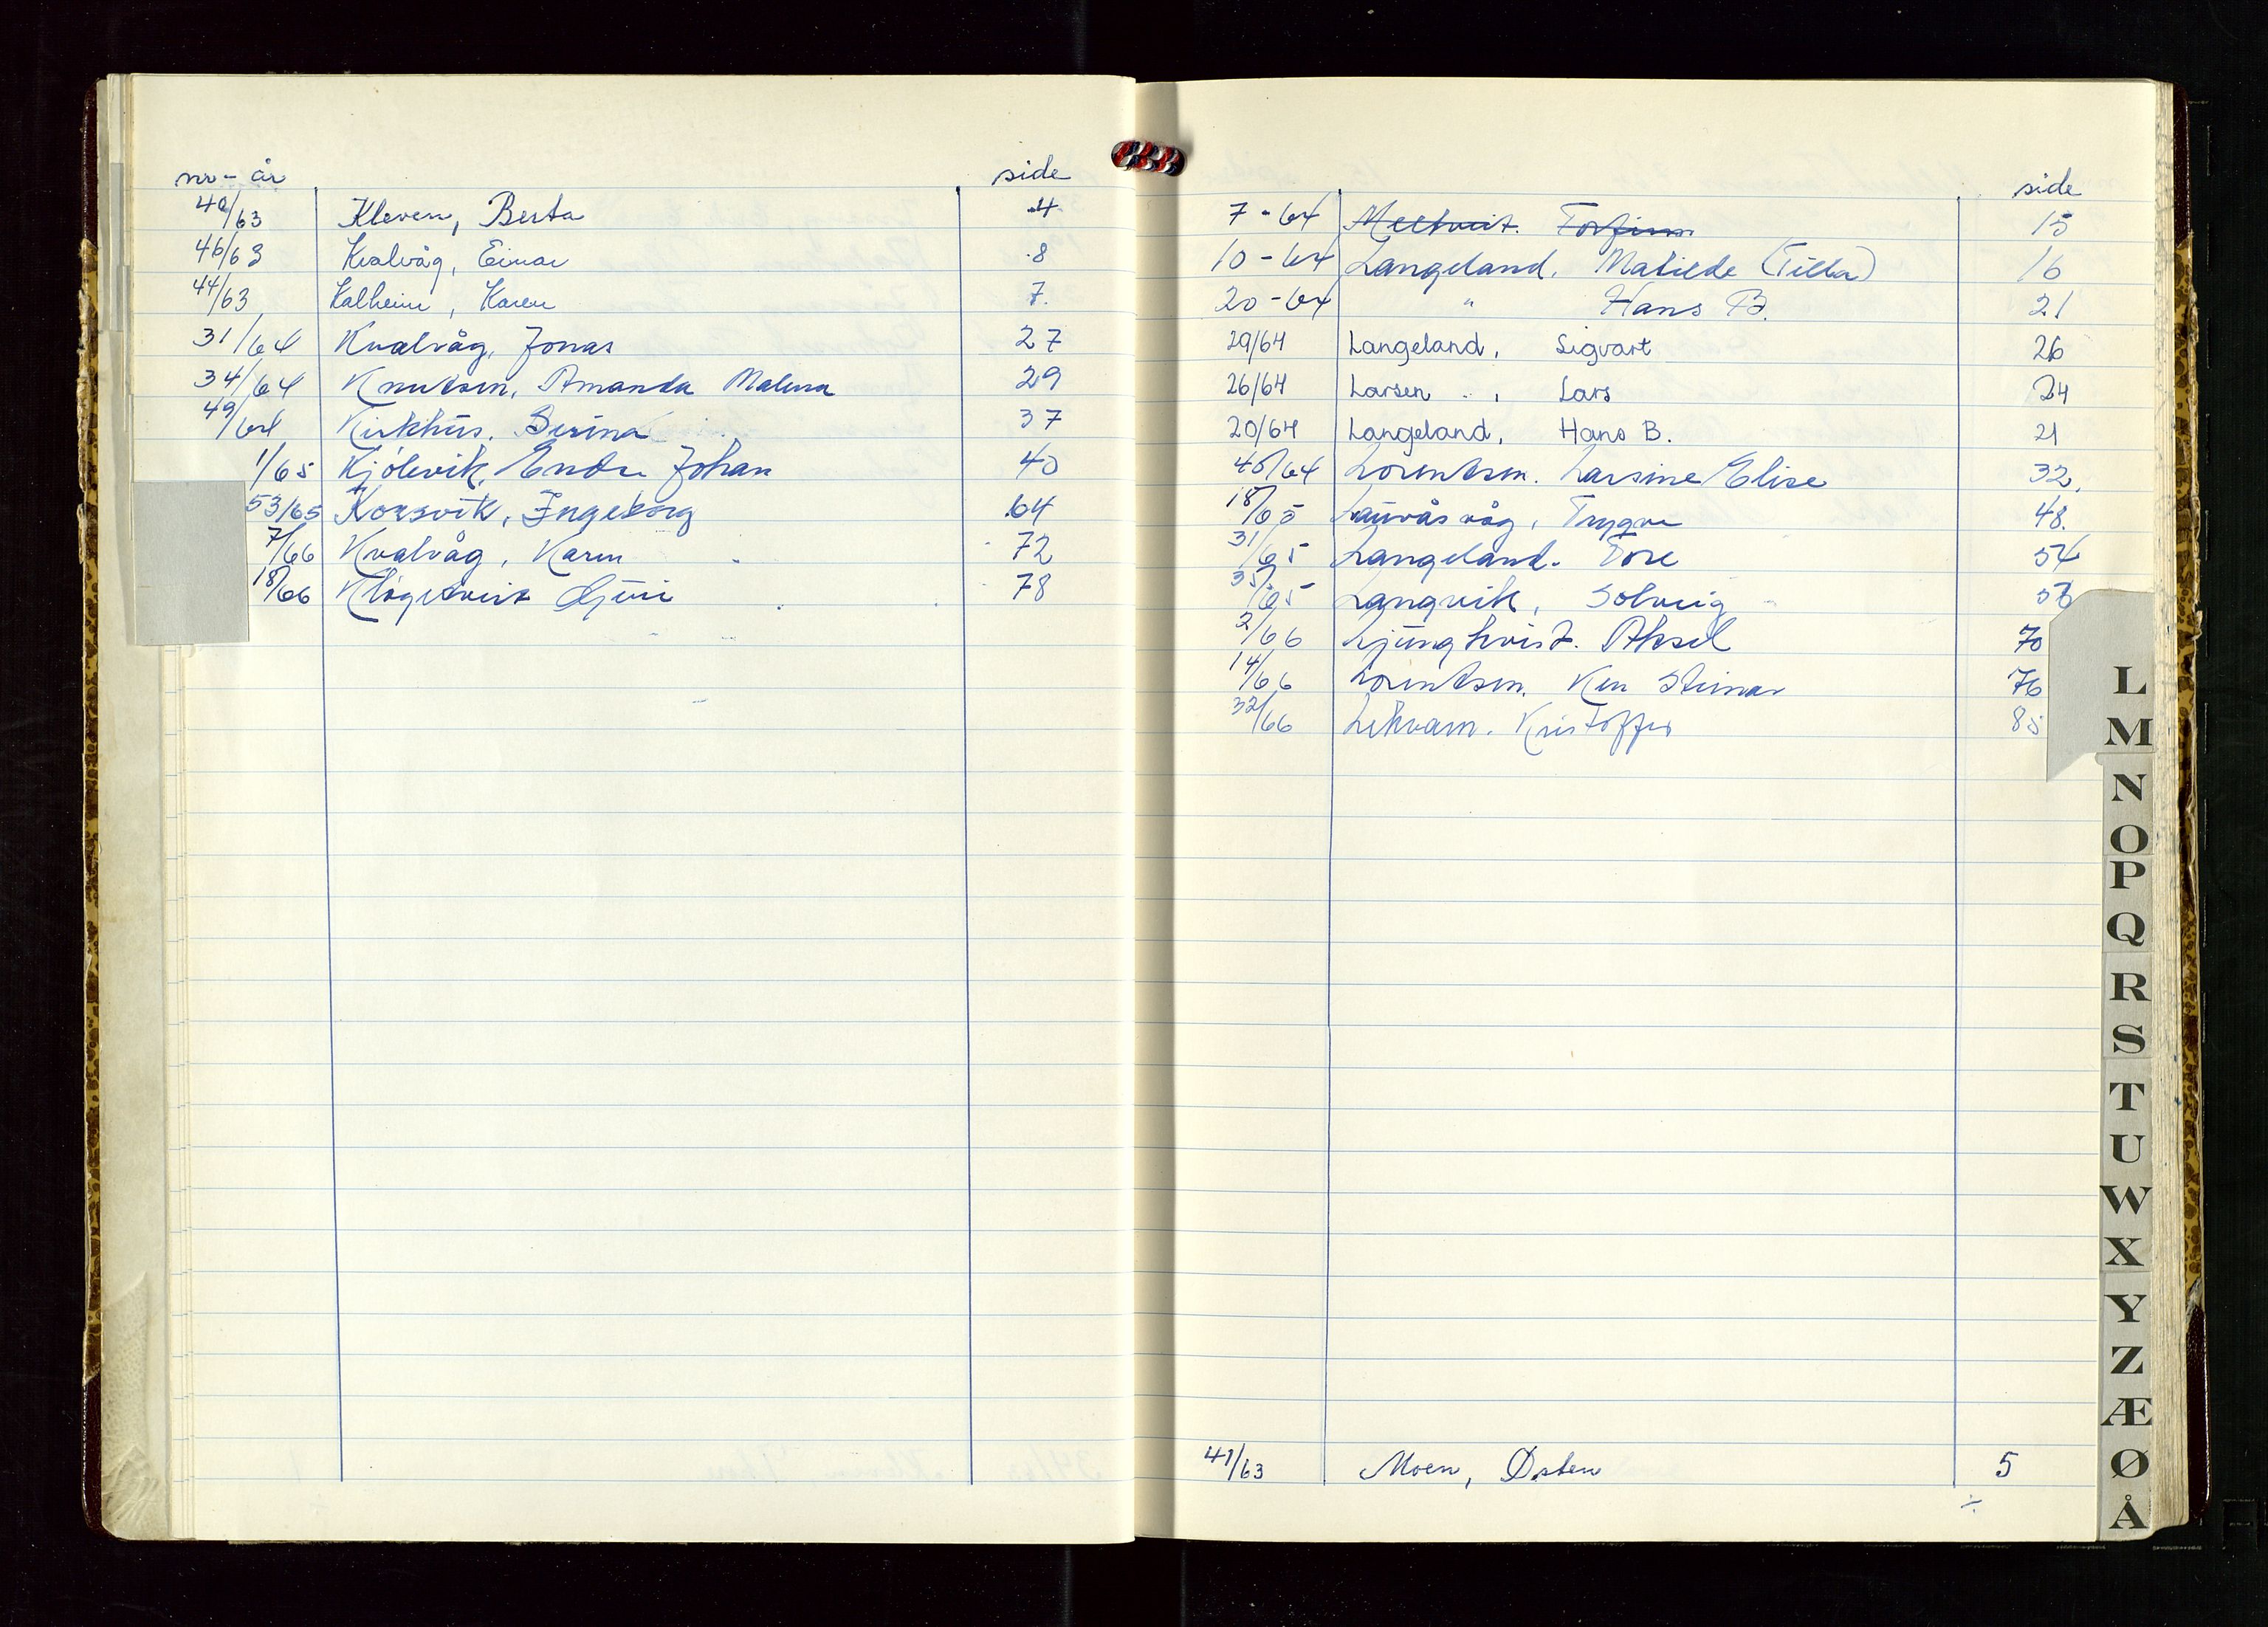 nr - år side
40/63 Kleven, Berta 4
46/63 Kvalvåg, Einar 8
44/63 Kalheim, Karen 7.
31/64 Kvalvåg, Jonas 27
34/64 Knutsen, Amanda Malena 29
49/64 Kirkhus. Serina 37
1/65 Kjölevik, Endre Johan 40
53/65 Korsvik, Ingeborg 64
7/66 Kvalvåg, Karen 72
18/66 Guri 78
side
7-64 Meltveit. Torfinn 15
10-64 Langeland, Matilde (Tilla) 16
20-64 " Hans B. 21
29/64 Langeland, Sigvart 26
26/64 Larsen, Lars 24
20/64 Langeland, Hans B. 21
40/64 Lorentsen. Larsine Elise 32,
18/65 Laurås våg, Trygve 48.
31/65 Langeland. Tore 54
35/65 Langvik, Solveig 56
2/66 Ljungkvist. Aksel 70
14/66 Lorentsen. Ken Steinar 76
32/66 Lekvam. Kristoffer 85
41/63 Moen, Østen 5
L
M
N
O
P
Q
R
S
T
U
W
X
Y
Z
Æ
Ø
Å